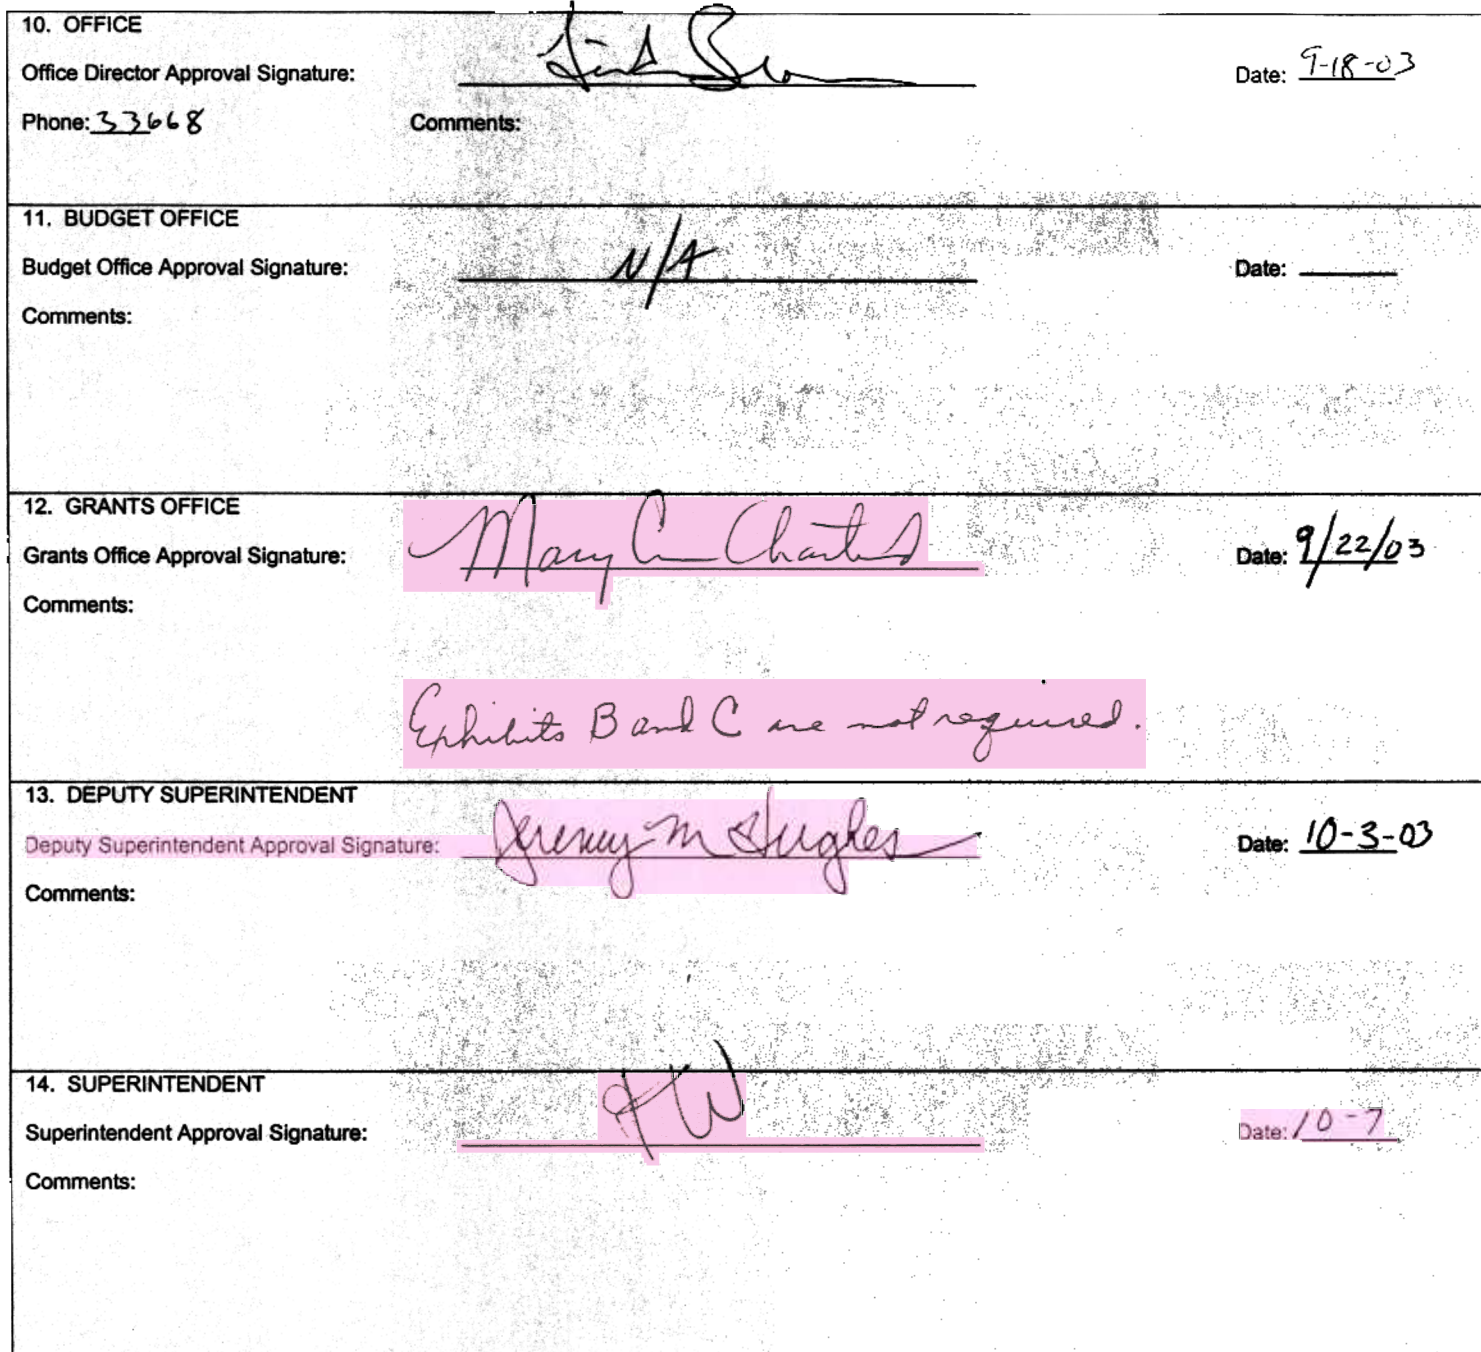 10. OFFICE
Office Director Approval Signature: Date: 9-18-03
Phone: 33668 Comments:
11. BUDGET OFFICE
Budget Office Approval Signature: N/A Date:
Comments:
12. GRANTS OFFICE
Grants Office Approval Signature: Mary C Date: 9/22/03
Comments:
Exhibits B and C are not required.
13. DEPUTY SUPERINTENDENT
Deputy Superintendent Approval Signature: Jeremy M Hughes Date: 10-3-03
Comments:
14. SUPERINTENDENT
Superintendent Approval Signature: Date: 10-7
Comments: